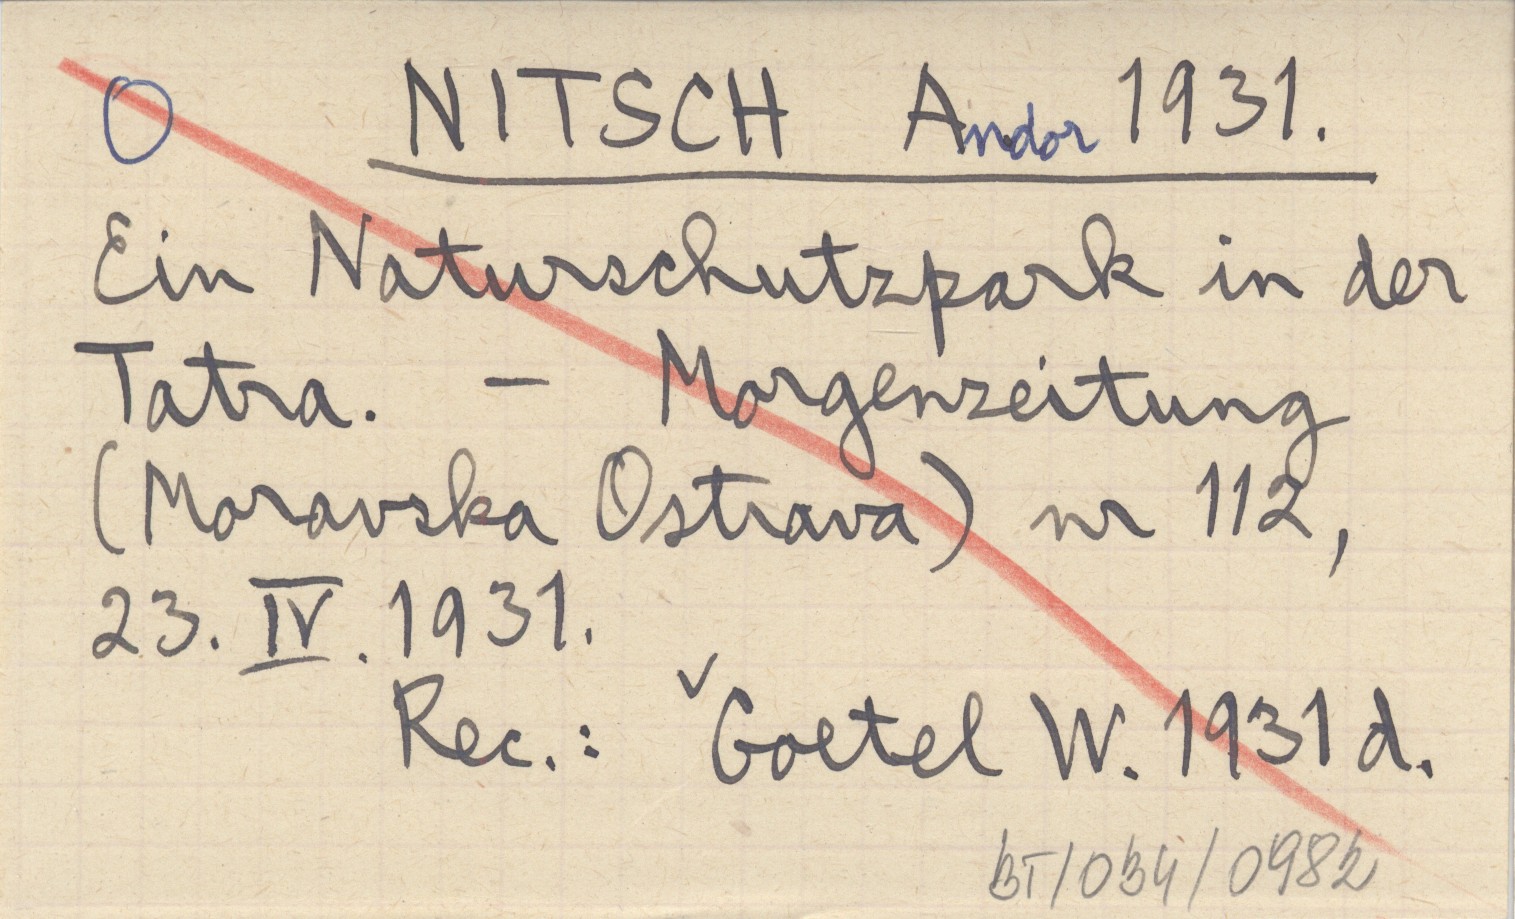 O NITSCH Andor 1931.
Ein Naturschutzpark in der
Tatra. – Morgenzeitung
(Moravska Ostrava) nr 112,
23. IV. 1931.
Rec.: ✓Goetel W. 1931 d.
BT/034/0982